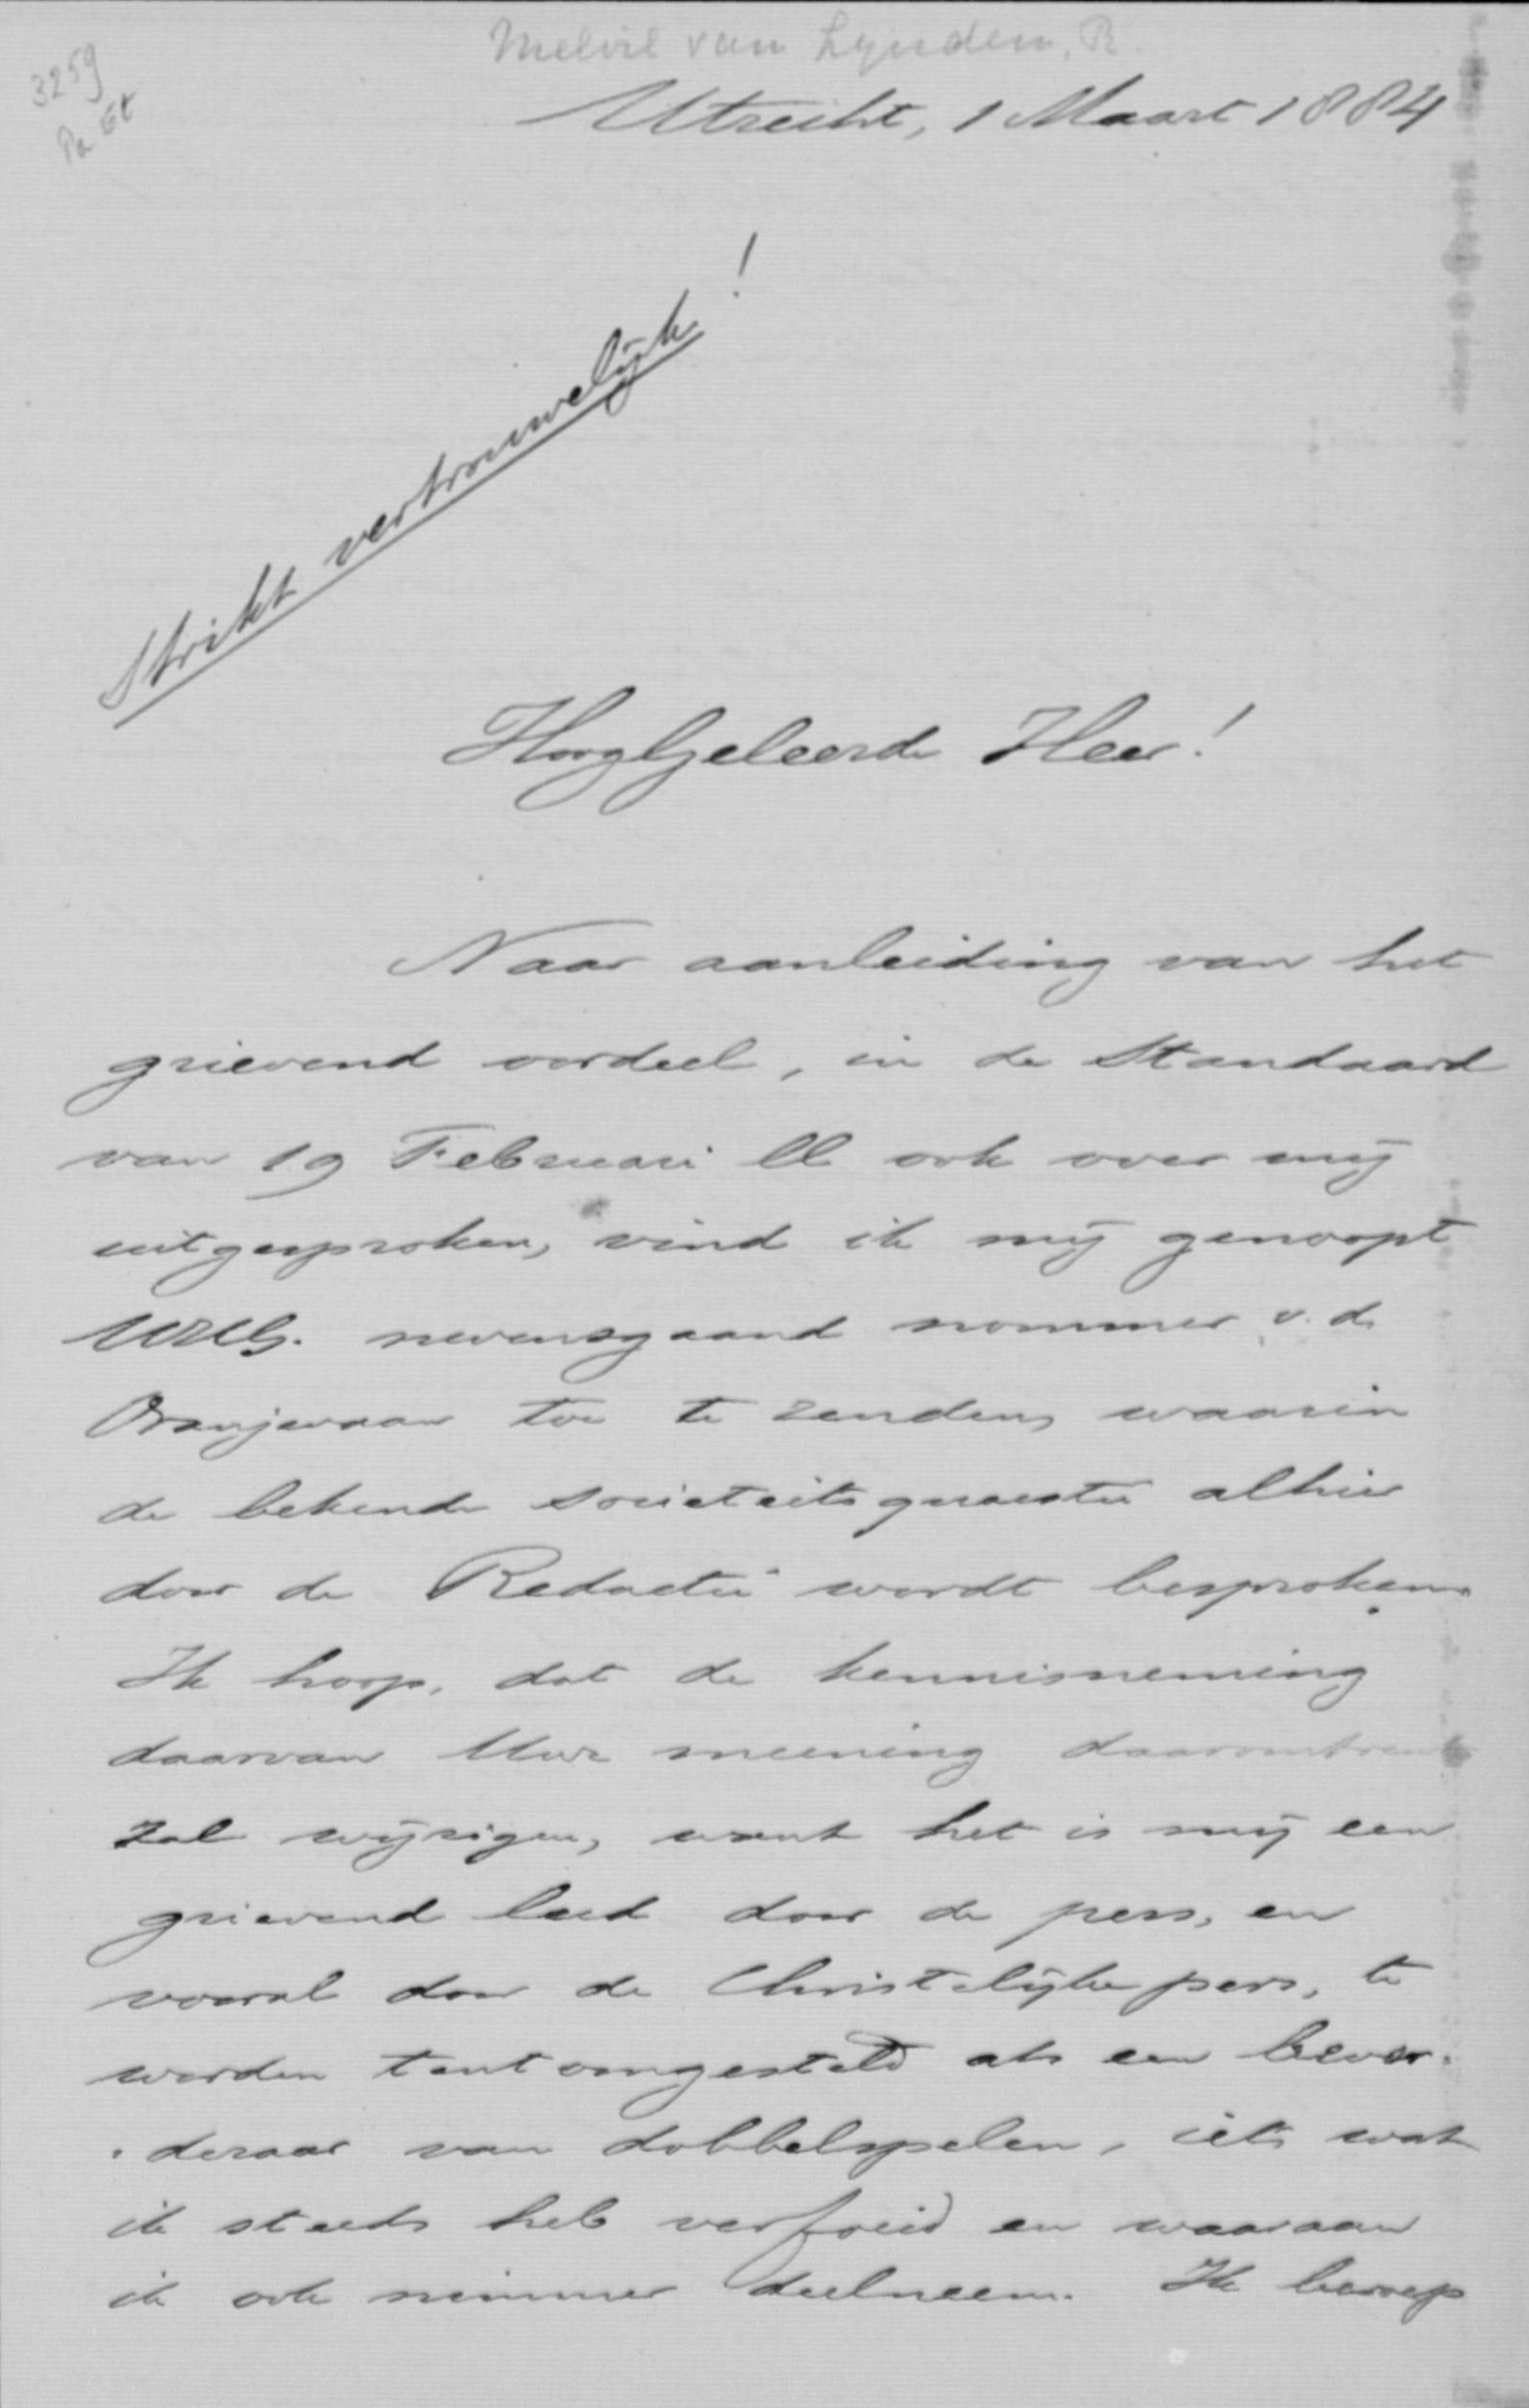 Melvil van Lynden, R.
3259
Pa Et
Utrecht, 1 Maart 1884
Strikt vertrouwelijk!
HoogGeleerde Heer!
Naar aanleiding van het
grievend oordeel, in de Standaard
van 19 Februari ll ook over mij
uitgesproken, vind ik mij genoopt
UHG. nevensgaand nommer v. d.
Oranjevaan toe te zenden, waarin
de bekende societeitsquaestie alhier
door de Redactie wordt besproken.
Ik hoop, dat de kennisneming
daarvan Uwe meening daaromtrent
zal wijzigen, want het is mij een
grievend leed door de pers, en
vooral door de Christelijke pers, te
worden tentoongesteld als een bevor-
deraar van dobbelspelen, iets wat
ik steeds heb verfoeid en waaraan
ik ook nimmer deelneem. Ik beroep